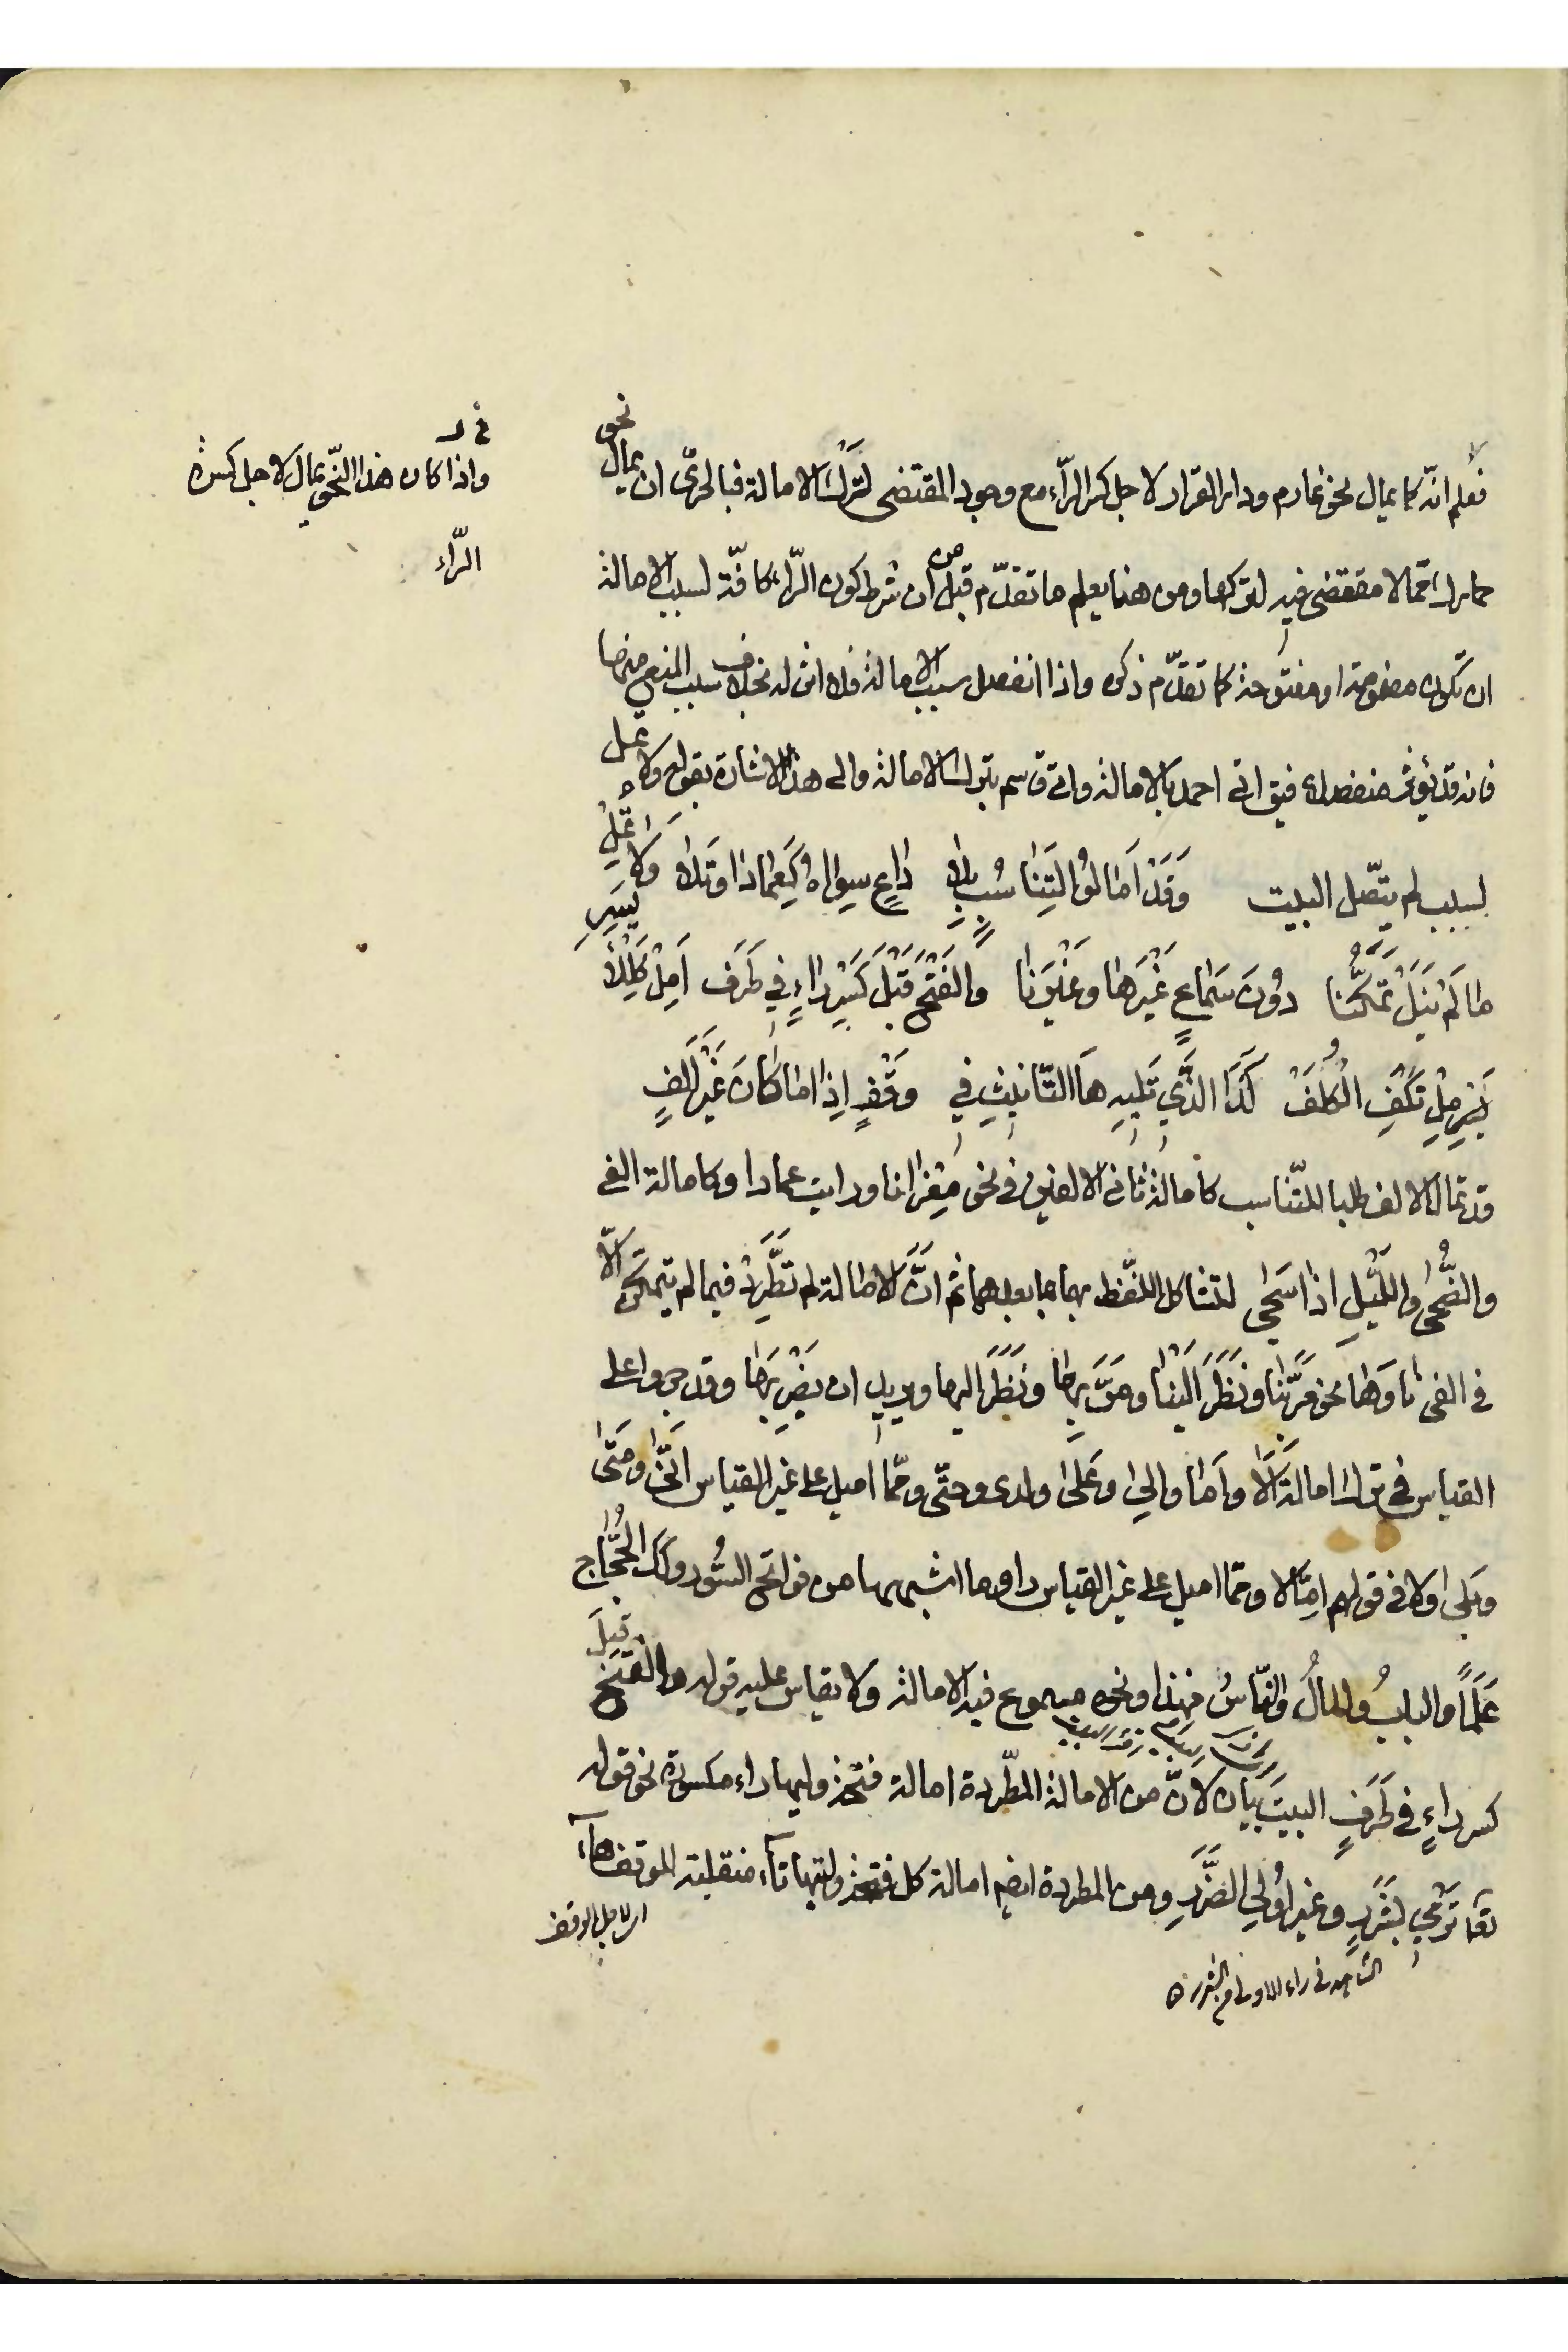 فعلم انّه كما يمال نحو غارم ودار القرار لاجل كسر الرّاء مع وجود المقتضى لترك الامالة فبالحرىّ ان يمال نحو
حمارك ممّا لا مقتضى فيه لتركها ومن هنا يعلم ما تقدّم من قبل ان شرط كون الرّاء كافّة لسبب الامالة
ان تكون مضمومة او مفتوحة كما تقدّم ذكره واذا انفصل سبب الامالة فلا اثر له بخلاف سبب المنع منها
فانه قد يؤثر منفصلا فيق اتى احمد بالامالة واتى قاسم بترك الامالة والى هذا الاشارة بقوله ولا تمل
لسبب لم يتّصل البيت وَقَدْ اَمَالُوا لِتَنَاسُبٍ بِلَا دَاعٍ سِوَاهُ كَعِمَادَا وَتَلَا وَلَا تُمِلْ
مَا لَمْ يَنَلْ تَمَكُّنَا دُونَ سَمَاعٍ غَيْرَهَا وَغَيْرَنَا وَالْفَتْحَ قَبْلَ كَسْرِ رَاءٍ فِي طَرَف اَمِلْ كَلِلْاَيْسَرِ
مِلْ تُكْفَ الْكُلَفْ كَذَا الَّذِي تَلِيهِ هَا التَّانِيثِ فِي وَقْفٍ اِذَا مَا كَانَ غَيْرَ اَلِفٍ
قد تمال الالف طلبا للتّناسب كامالة ثانى الالفين فى نحو مغزانا ورايت عمادا وكامالة الفى
والضُّحى واللَّيْلِ اذا سَجَى لتشاكل اللفّظ بهما ما بعدهما ثم انّ الامالة لم تَطَّرِدْ فيما لم يتمكّن الّا
فى الفى نا وها نحو مَرَّ بنا ونَظَرَ اليْنا ومَرَّ بها ونَظَرَ اليها ويريد ان يضْرِبَها وقد جروا على
القياس فى ترك امالة اَلَا واَمَا وإلى وعَلى ولدى وحتّى وممّا اميل على غير القياس اَنّى ومَتَى
وبَلى ولا فى قولهم اِمّالا وممّا اميل على غير القياس را وما اشبهها من فواتح السُّور وكك الحُجَّاج
عَلَمًا والبابُ والمالُ والنّاسُ فهذا ونحوه مسموع فيه الامالة ولا يقاس عليه قوله والفتح قبل
كسر راءٍ فى طَرَفٍ البيت بيان لانّ من الامالة المطّردة امالة فتحة وليها راء مكسورة نحو قوله
تعا تَرْمِى بِشَرَرٍ وغير اُولِى الضَّرَرِ ومن المطردة ايضا امالة كل فتحة وليتها تآء منقلبة للوقف هآء
لاجل الوقف
واذا كان هذا النّحو يمال لاجل كسرة
الرّاء